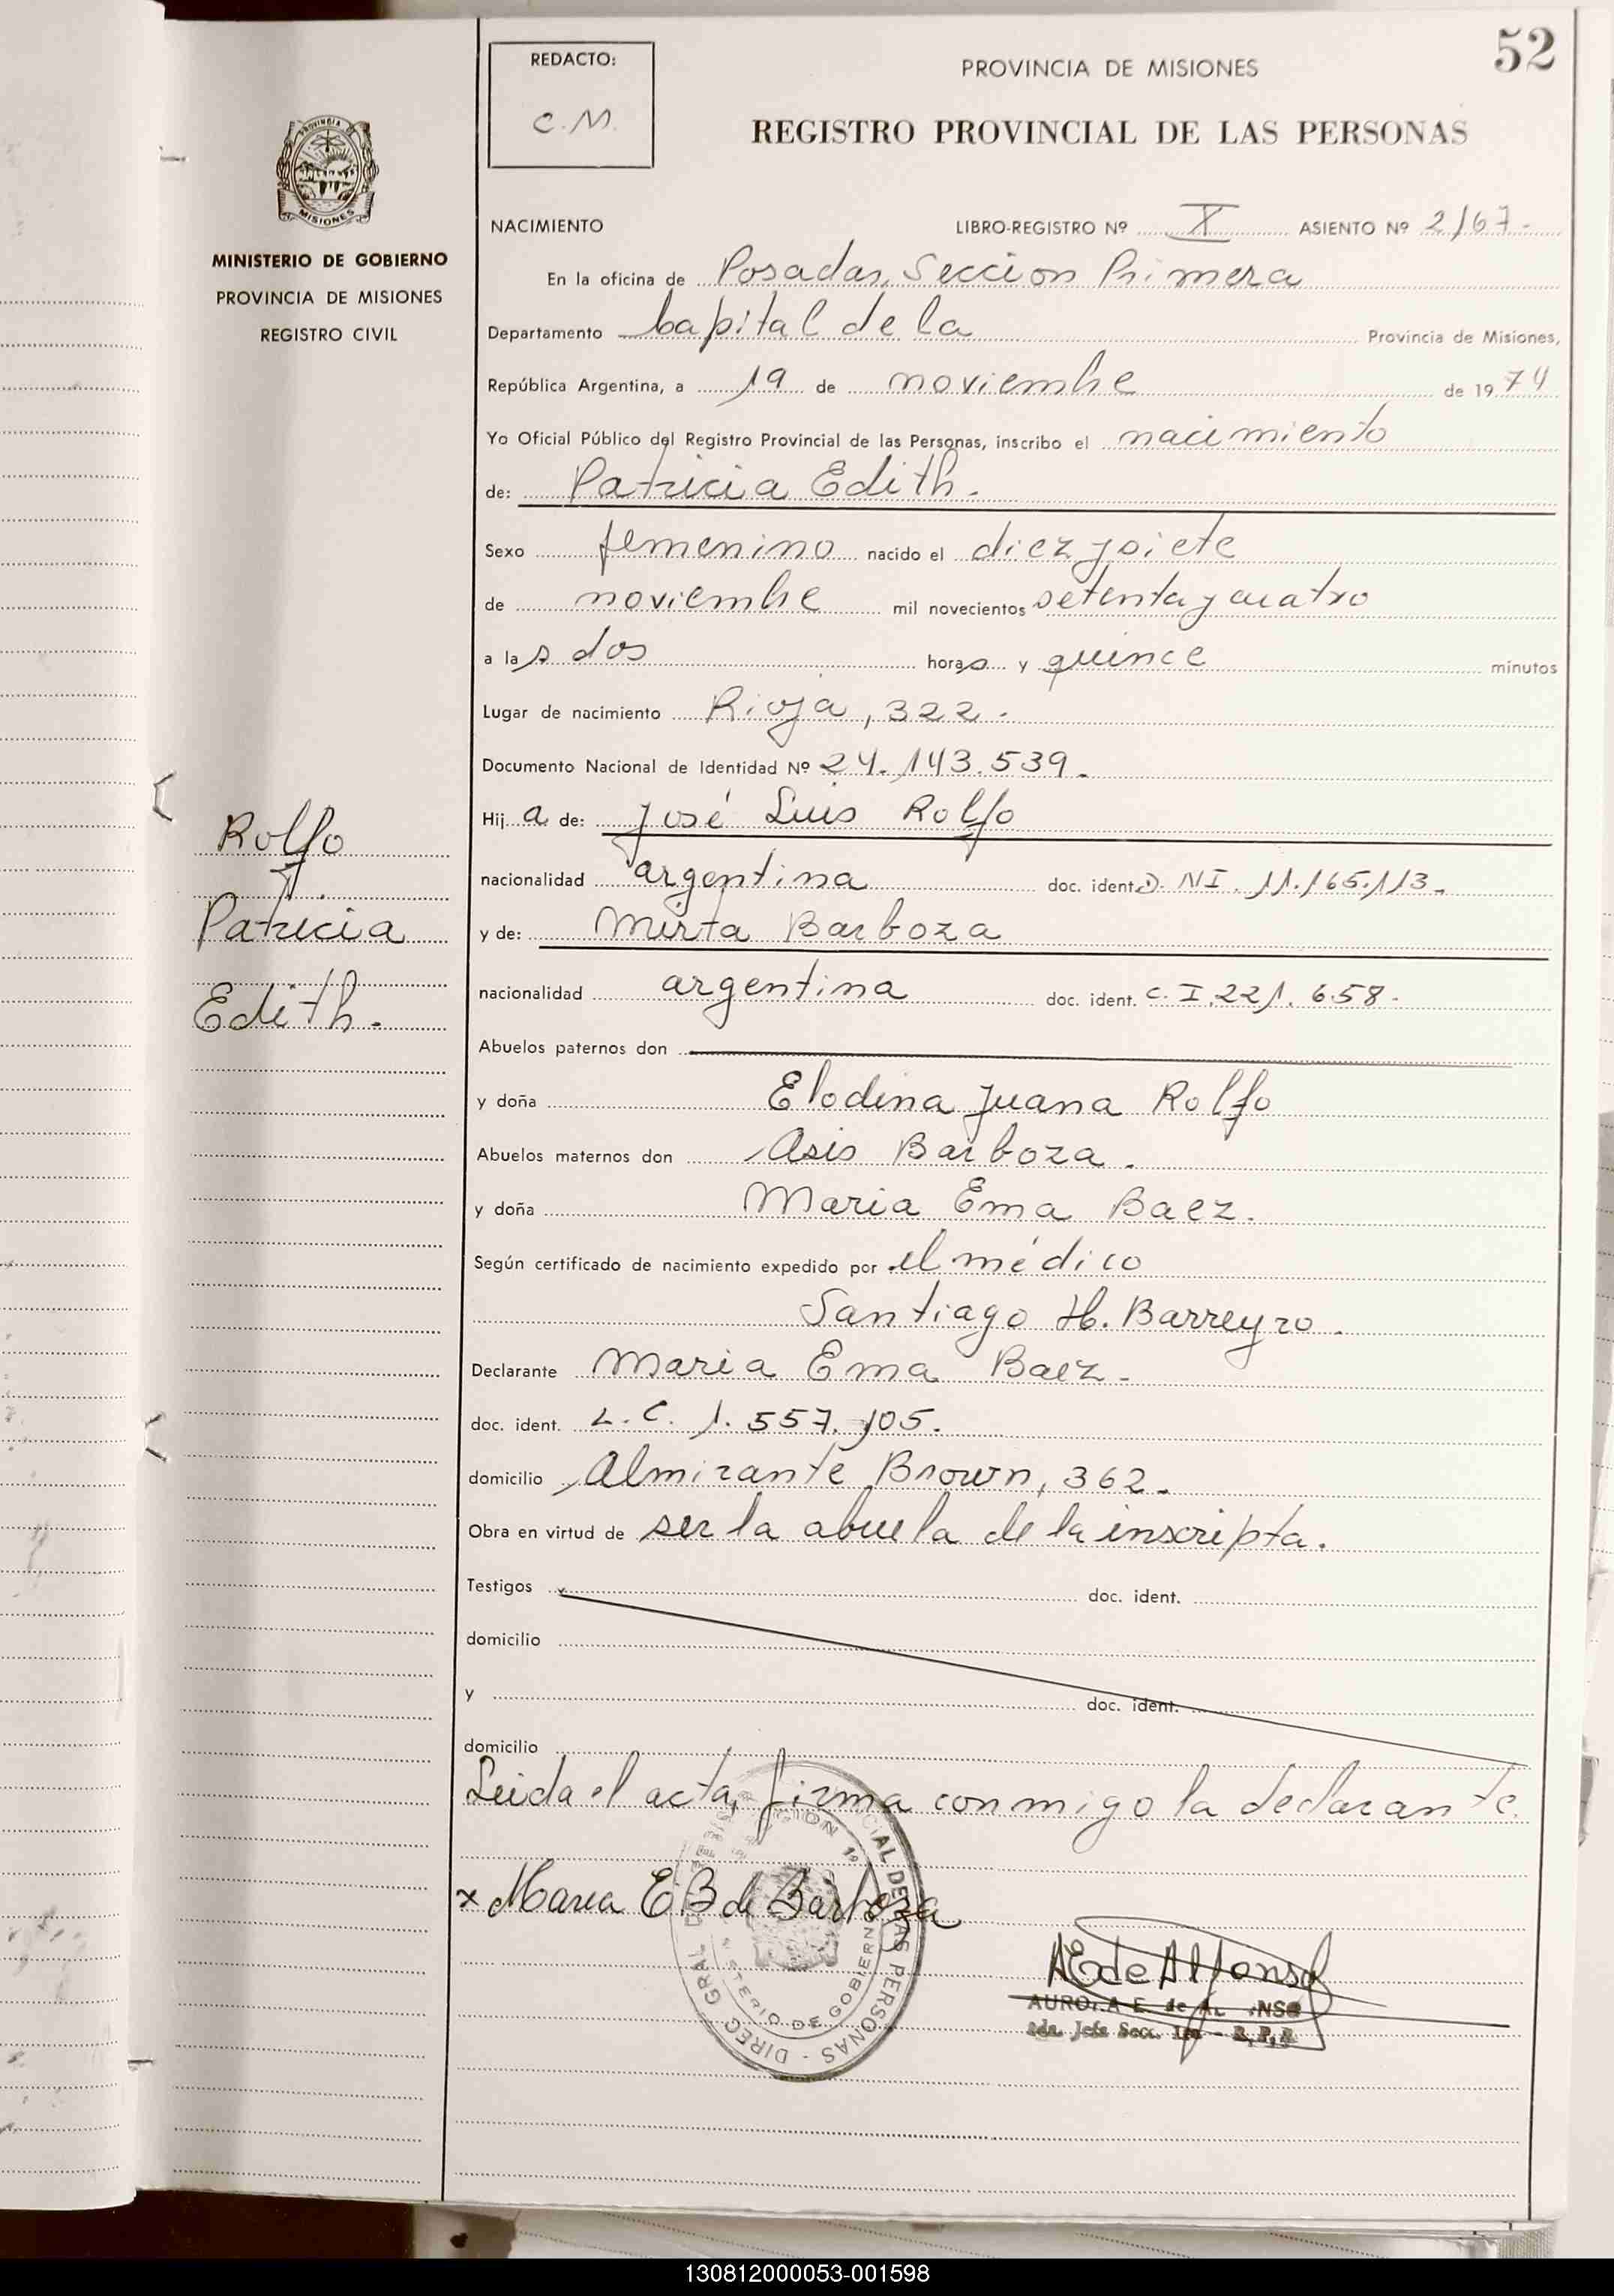 52
REDACTO:
C.M.
PROVINCIA DE MISIONES
REGISTRO PROVINCIAL DE LAS PERSONAS
PROVINCIA DE
MISIONES
MINISTERIO DE GOBIERNO
PROVINCIA DE MISIONES
REGISTRO CIVIL
NACIMIENTO LIBRO-REGISTRO Nº X ASIENTO Nº 2167-
En la oficina de Posadas, Seccion Primera
Departamento Capital de la Provincia de Misiones,
República Argentina, a 19 de noviembre de 1974
Yo Oficial Público del Registro Provincial de las Personas, inscribo el nacimiento
de: Patricia Edith.
Sexo femenino nacido el diez y siete
de noviembre mil novecientos setenta y cuatro
a las dos horas y quince minutos
Lugar de nacimiento Rioja, 322.
Documento Nacional de Identidad Nº 24.143.539.
Hija de: José Luis Rolfo
nacionalidad argentina doc. ident. D.NI. 11.165.113.
y de: Mirta Barboza
nacionalidad argentina doc. ident. C.I. 221.658.
Abuelos paternos don
y doña Elodina Juana Rolfo
Abuelos maternos don Asis Barboza.
y doña Maria Ema Baez.
Según certificado de nacimiento expedido por el médico
Santiago H. Barreyro.
Declarante Maria Ema Baez.
doc. ident. L.C. 1.557.105.
domicilio Almirante Brown, 362.
Obra en virtud de ser la abuela de la inscripta.
Testigos doc. ident.
domicilio
y doc. ident.
domicilio
Leida el acta, firma conmigo la declarante.
x Maria E B de Barboza
AE de Alfonso
Rolfo
Patricia
Edith.
130812000053-001598